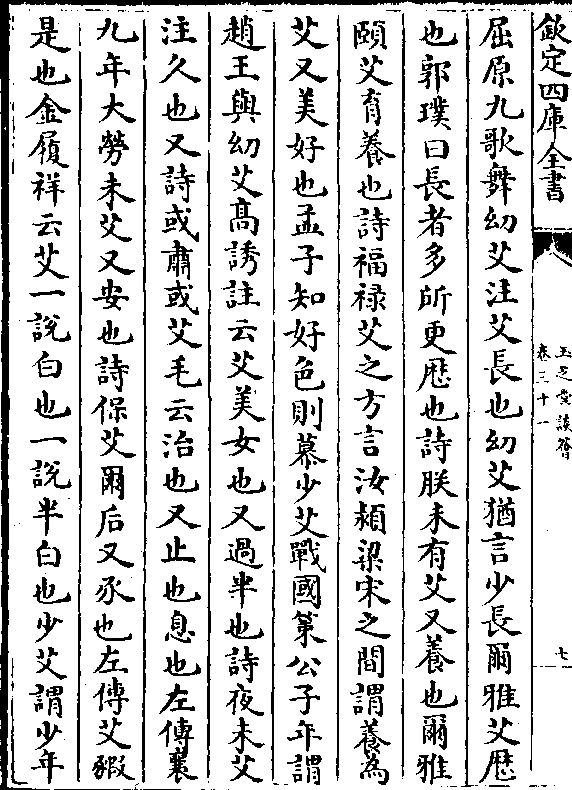 欽定四庫全書
玉芝堂談薈
卷三十一
七
屈原九歌舞幼艾注艾長也幼艾猶言少長爾雅艾厯
也郭璞曰長者多所更厯也詩朕未有艾又養也爾雅
頤艾育養也詩福禄艾之方言汝潁梁宋之間謂養為
艾又美好也孟子知好色則慕少艾戰國策公子年謂
趙王與幼艾高誘註云艾美女也又過半也詩夜未艾
注久也又詩或肅或艾毛云治也又止也息也左傳襄
九年大勞未艾又安也詩保艾爾后又豕也左傳艾豭
是也金履祥云艾一說白也一說半白也少艾謂少年